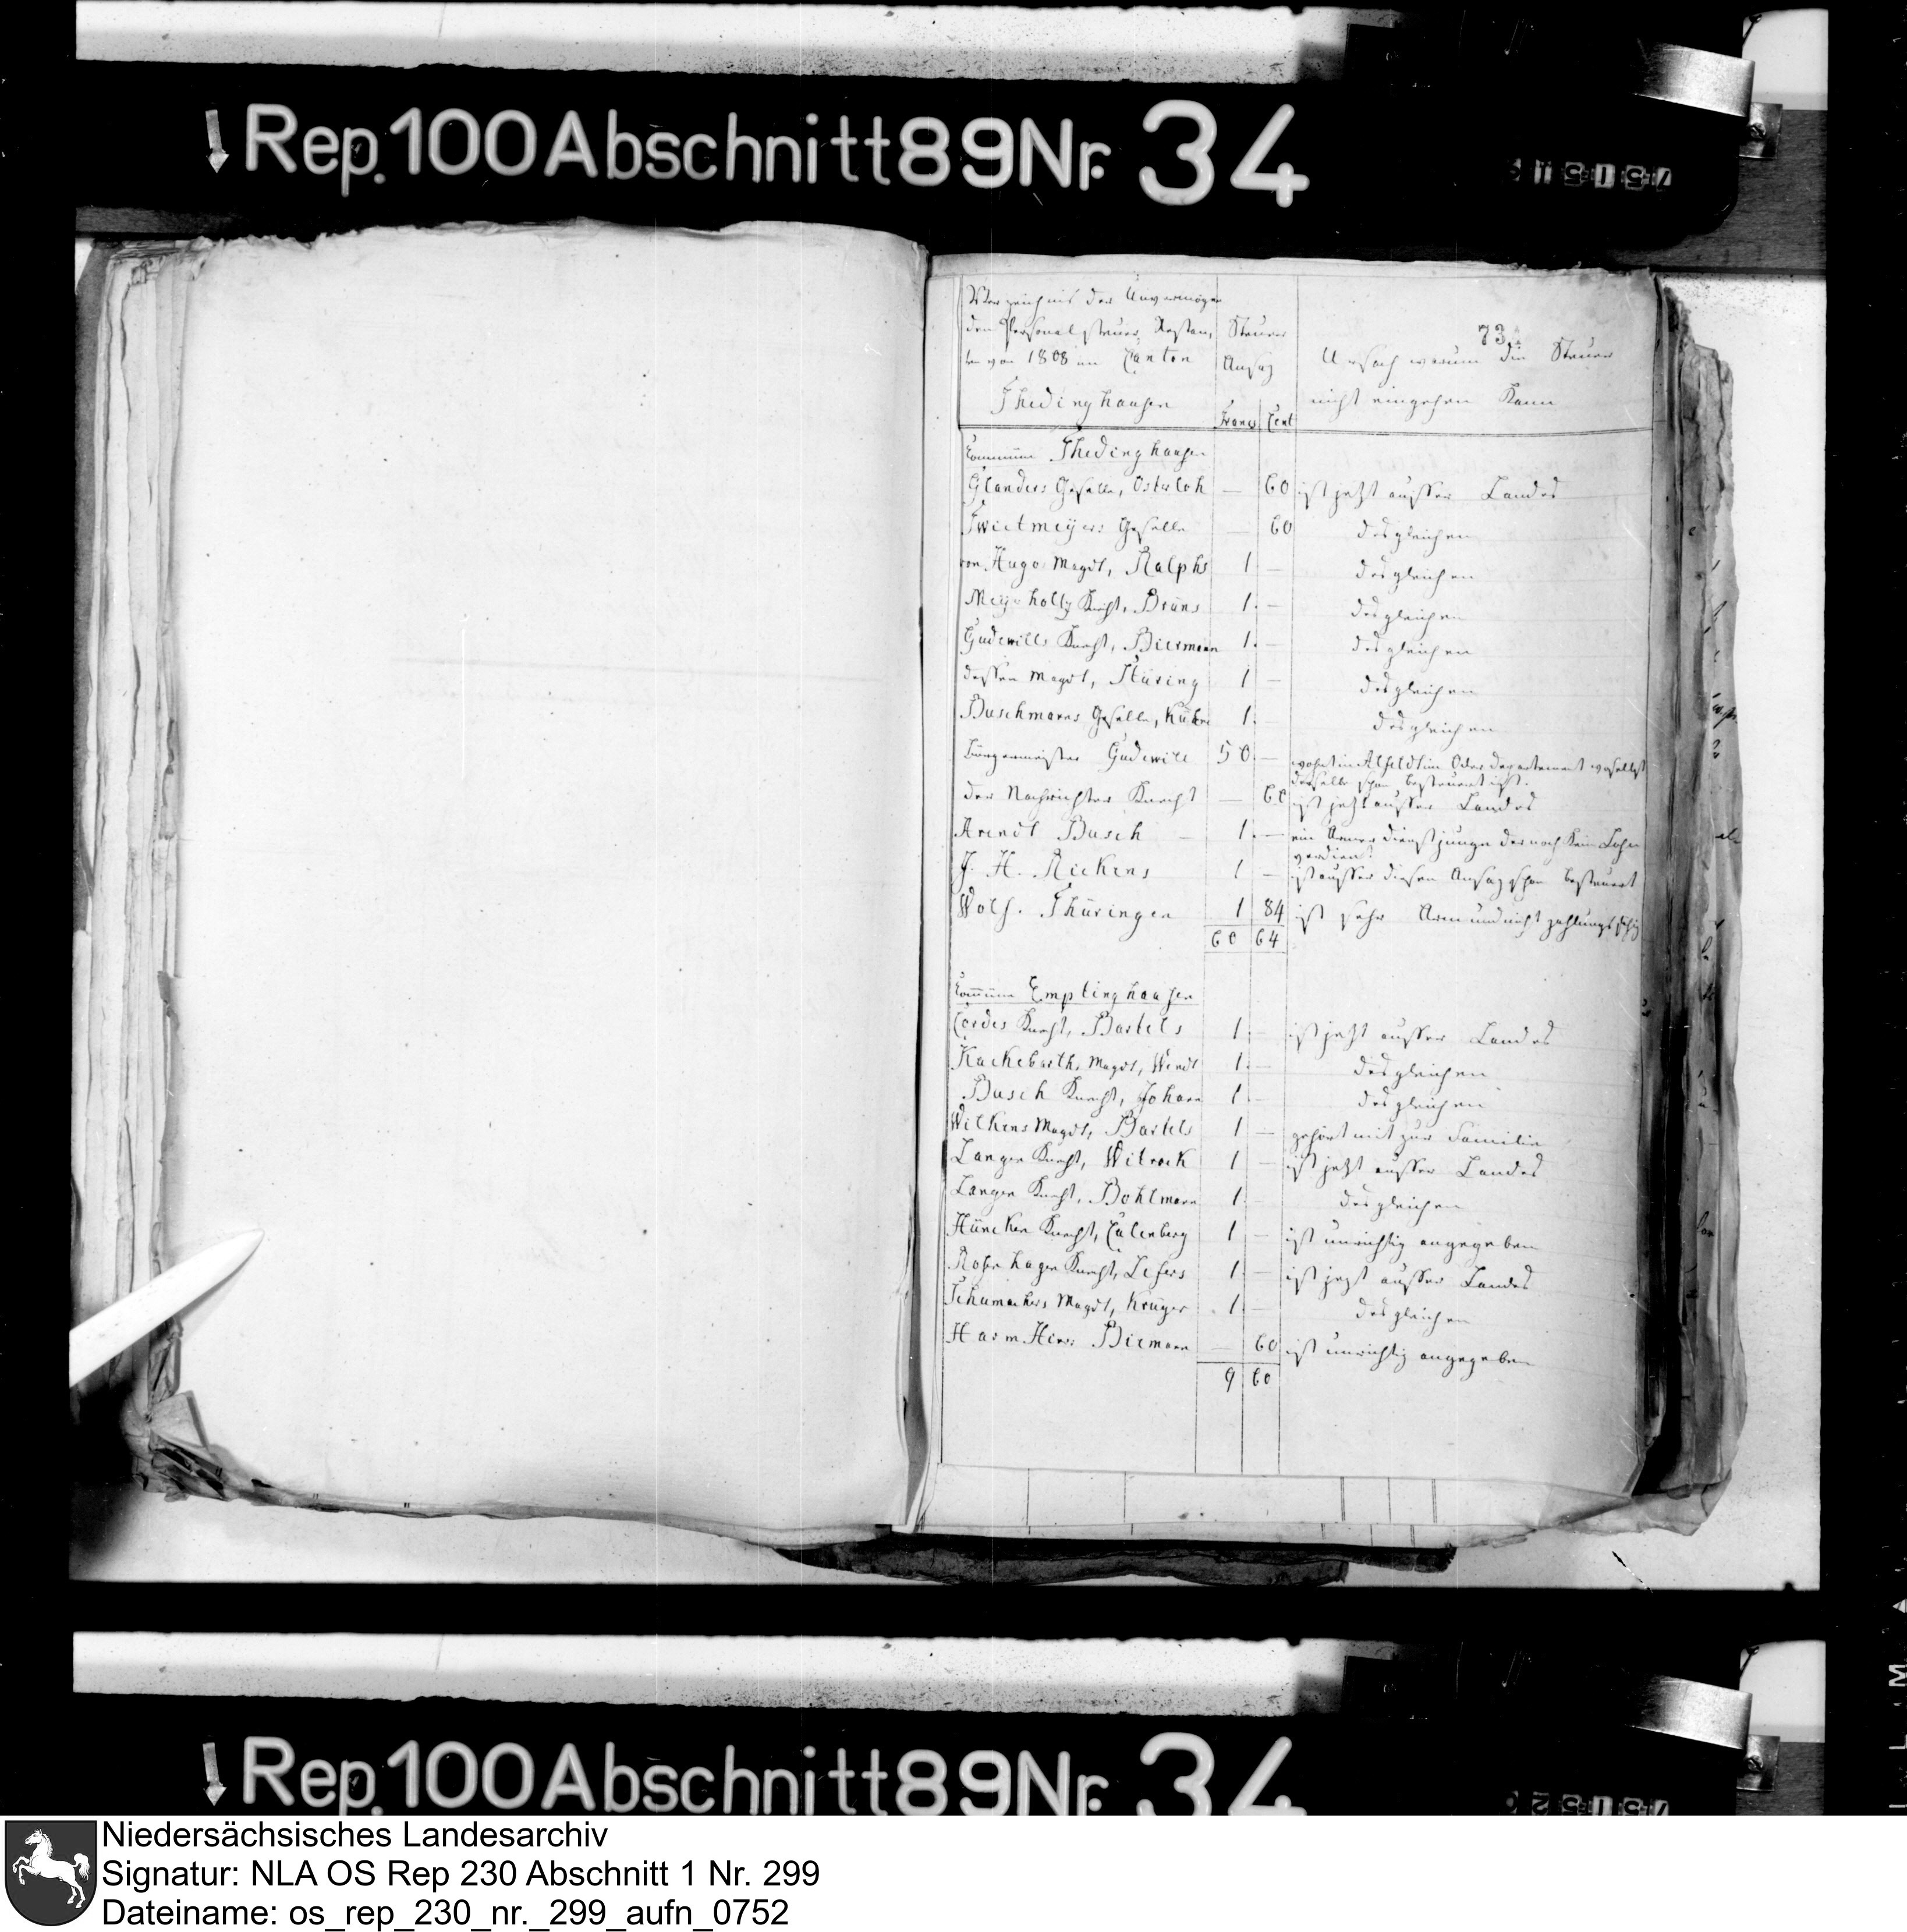 Rep. 100 Abschnitt 89 Nr. 34
73
Verzeichnis der Unvermögen
den Personalsteuer, Restan,
ten von 1808 im Canton
Thedinghausen
Steuer
Ansaz
Francs Cent
Ursach warum die Steuer
nicht eingehen kann
Commune Thedinghausen
Glanders Geselle, Osterloh — 60 ist jetzt ausser Landes
Twietmeyers Geselle — 60 desgleichen
von Hugo Magdt, Ralphs 1 — desgleichen
Knecht, Bruns 1. — desgleichen
Gudewills Knecht, Biermann 1. — desgleichen
dessen Magdt, Stüring 1 — desgleichen
Buschmanns Geselle, 1. — desgleichen
Burgermeister Gudewill 50 — wohnt in Alfeldt im Oder Departement woselbst
derselbe schon besteuert ist.
der Nachrichter Knecht — 60 ist jetzt ausser Landes
Arendt Busch — 1. — ein Armer dienstjunge der noch kein Lohn
verdient
J. H. Rickens 1 — ist ausser diesen Ansaz schon besteuert
Wolf. Thüringer 1 84 ist sehr Arm und nicht zahlungsfähig
60 64
Commune Emptinghausen
Cordes Knecht, Bartels 1. — ist jetzt ausser Landes
Magdt, Wendt 1. — desgleichen
Busch Knecht, Johann 1 — desgleichen
Wilkens Magdt, Bartels 1 — gehört mit zur Familie
Langen Knecht, Witrock 1 — ist jetzt ausser Landes
Langen Knecht, Bohlmann 1 — desgleichen
Hüncken Knecht, Culenberg 1 — ist unrichtig angegeben
Rosenhagen Knecht, Lefers 1. — ist jezt ausser Landes
Schumachers Magdt, Krüger 1. — desgleichen
Harm Hinr: Biermann — 60 ist unrichtig angegeben
9 60
Rep. 100 Abschnitt 89 Nr. 34
Niedersächsisches Landesarchiv
Signatur: NLA OS Rep 230 Abschnitt 1 Nr. 299
Dateiname: os_rep_230_nr._299_aufn_0752